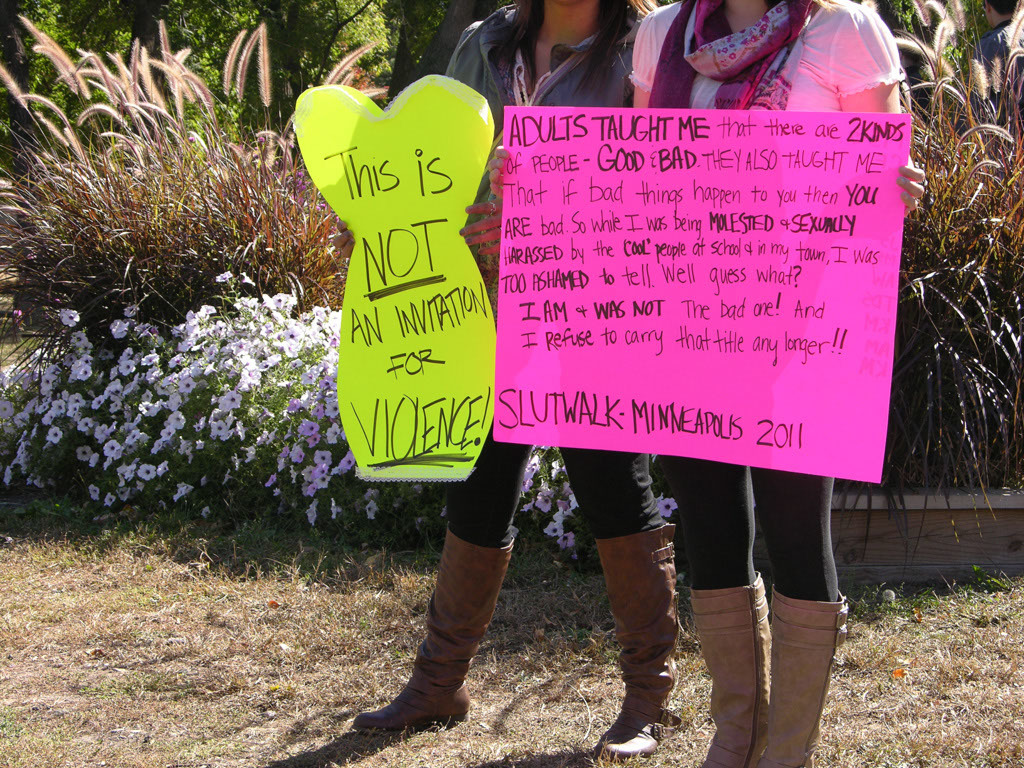 This is
NOT
AN INVITATION
FOR
VIOLENCE!
ADULTS TAUGHT ME that there are 2 KINDS
of PEOPLE - GOOD & BAD. THEY ALSO TAUGHT ME
That if bad things happen to you then YOU
ARE bad. So while I was being MOLESTED & SEXUALLY
HARASSED by the "COOL" people at school & in my town, I was
TOO ASHAMED to tell. Well guess what?
I AM & WAS NOT The bad one! And
I REFUSE to carry that title any longer!!
SLUTWALK - MINNEAPOLIS 2011